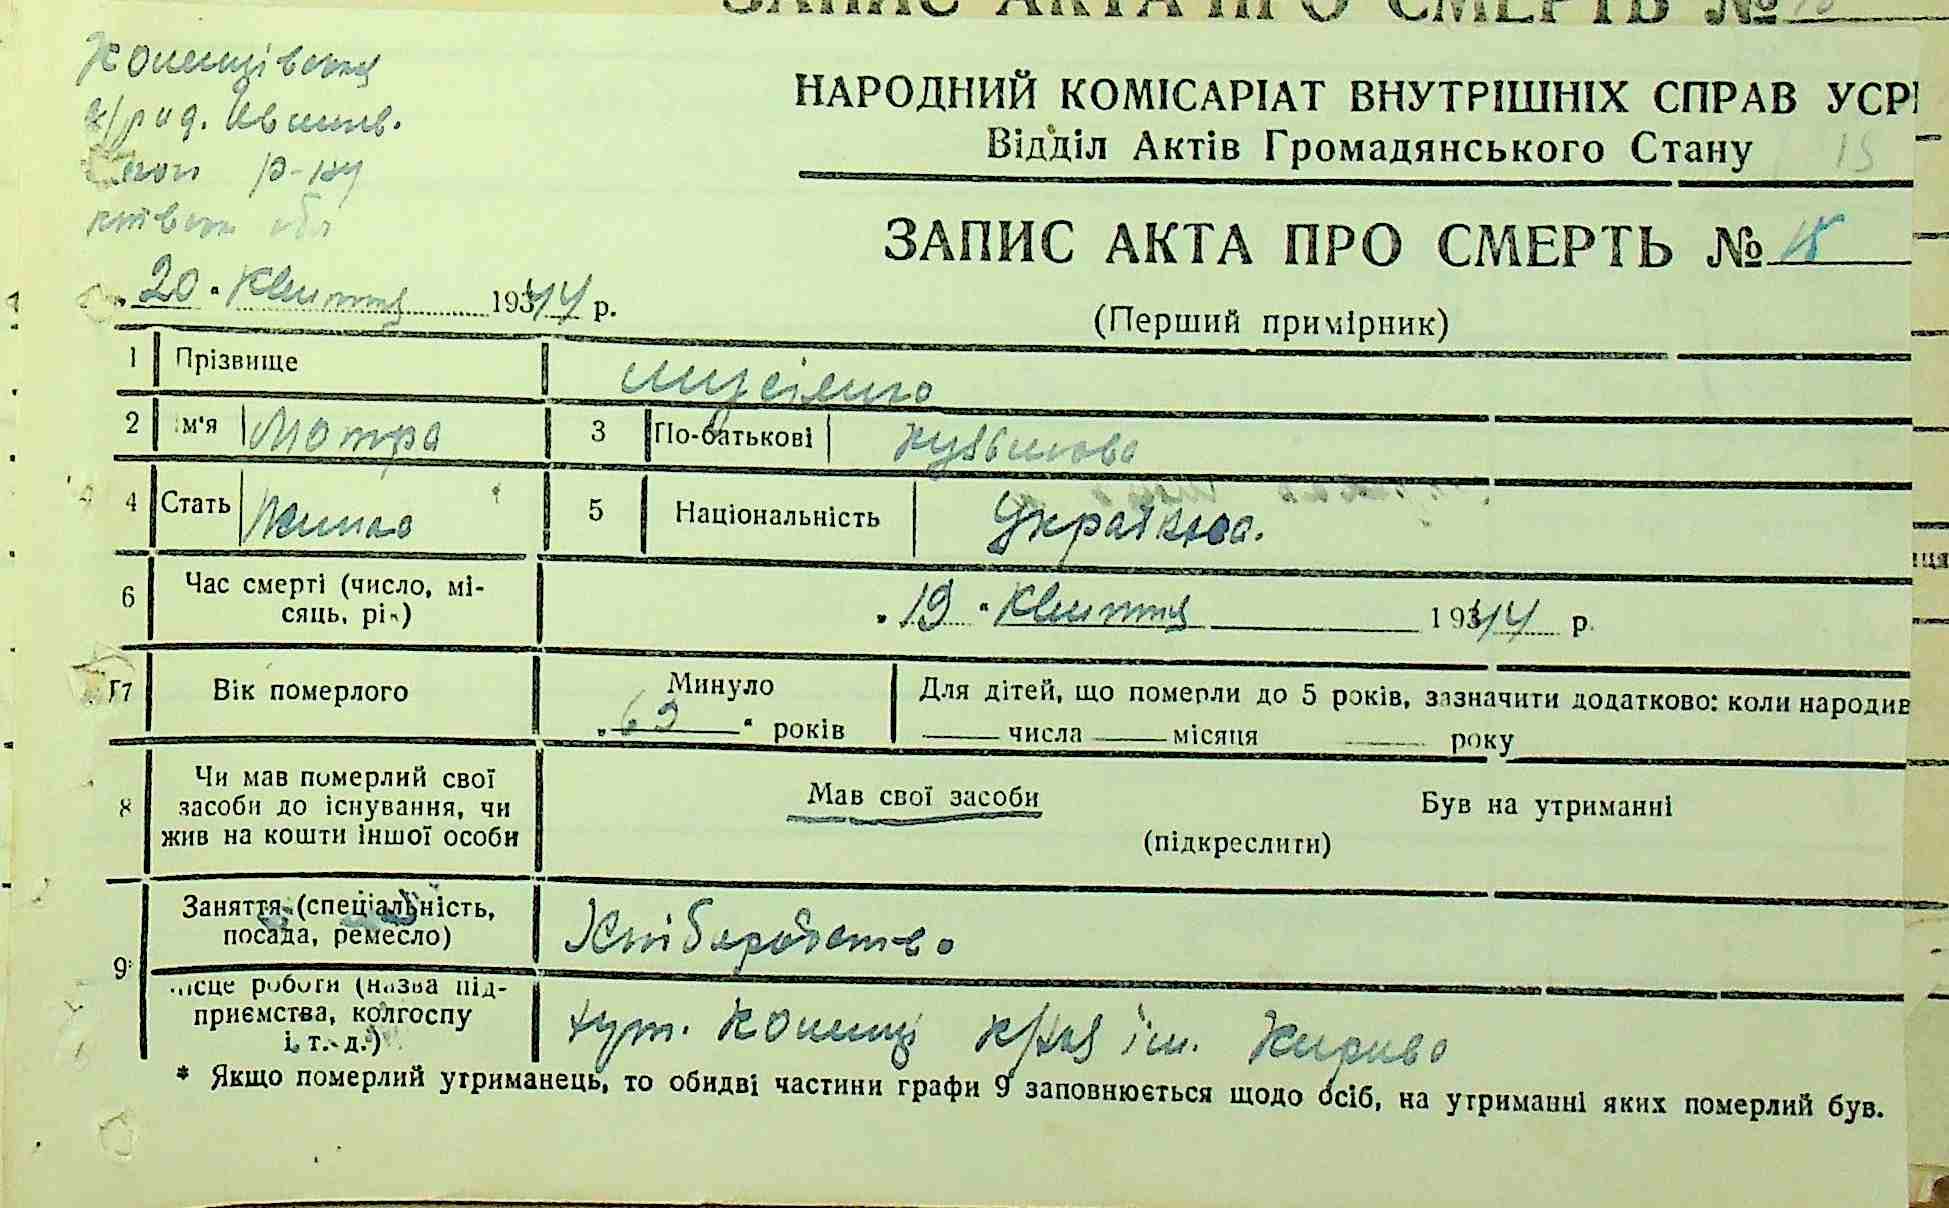 ЗАПИС АКТА ПРО СМЕРТЬ №
НАРОДНИЙ КОМІСАРІАТ ВНУТРІШНІХ СПРАВ УСР
Відділ Актів Громадянського Стану 15
ЗАПИС АКТА ПРО СМЕРТЬ №
(Перший примірник)
р-ну
обл
20 Квітня 1944 р.
1 Прізвище
2 Ім'я Мотра 3 По-батькові Кузьмовна
4 Стать 5 Національність Українка.
6 Час смерті (число, мі-
сяць, рік)
„19“ Квітня 1944 р.
7 Вік померлого Минуло
„69“ років
Для дітей, що померли до 5 років, зазначити додатково: коли народив
числа місяця року
8 Чи мав померлий свої
засоби до існування, чи
жив на кошти іншої особи
Мав свої засоби Був на утриманні
(підкреслити)
9 Заняття (спеціальність,
посада, ремесло)
Хліборобство
місце роботи (назва під-
приємства, колгоспу
і т. д.)
хут. Копенці ім. Кирова
* Якщо померлий утриманець, то обидві частини графи 9 заповнюється щодо осіб, на утриманні яких померлий був.